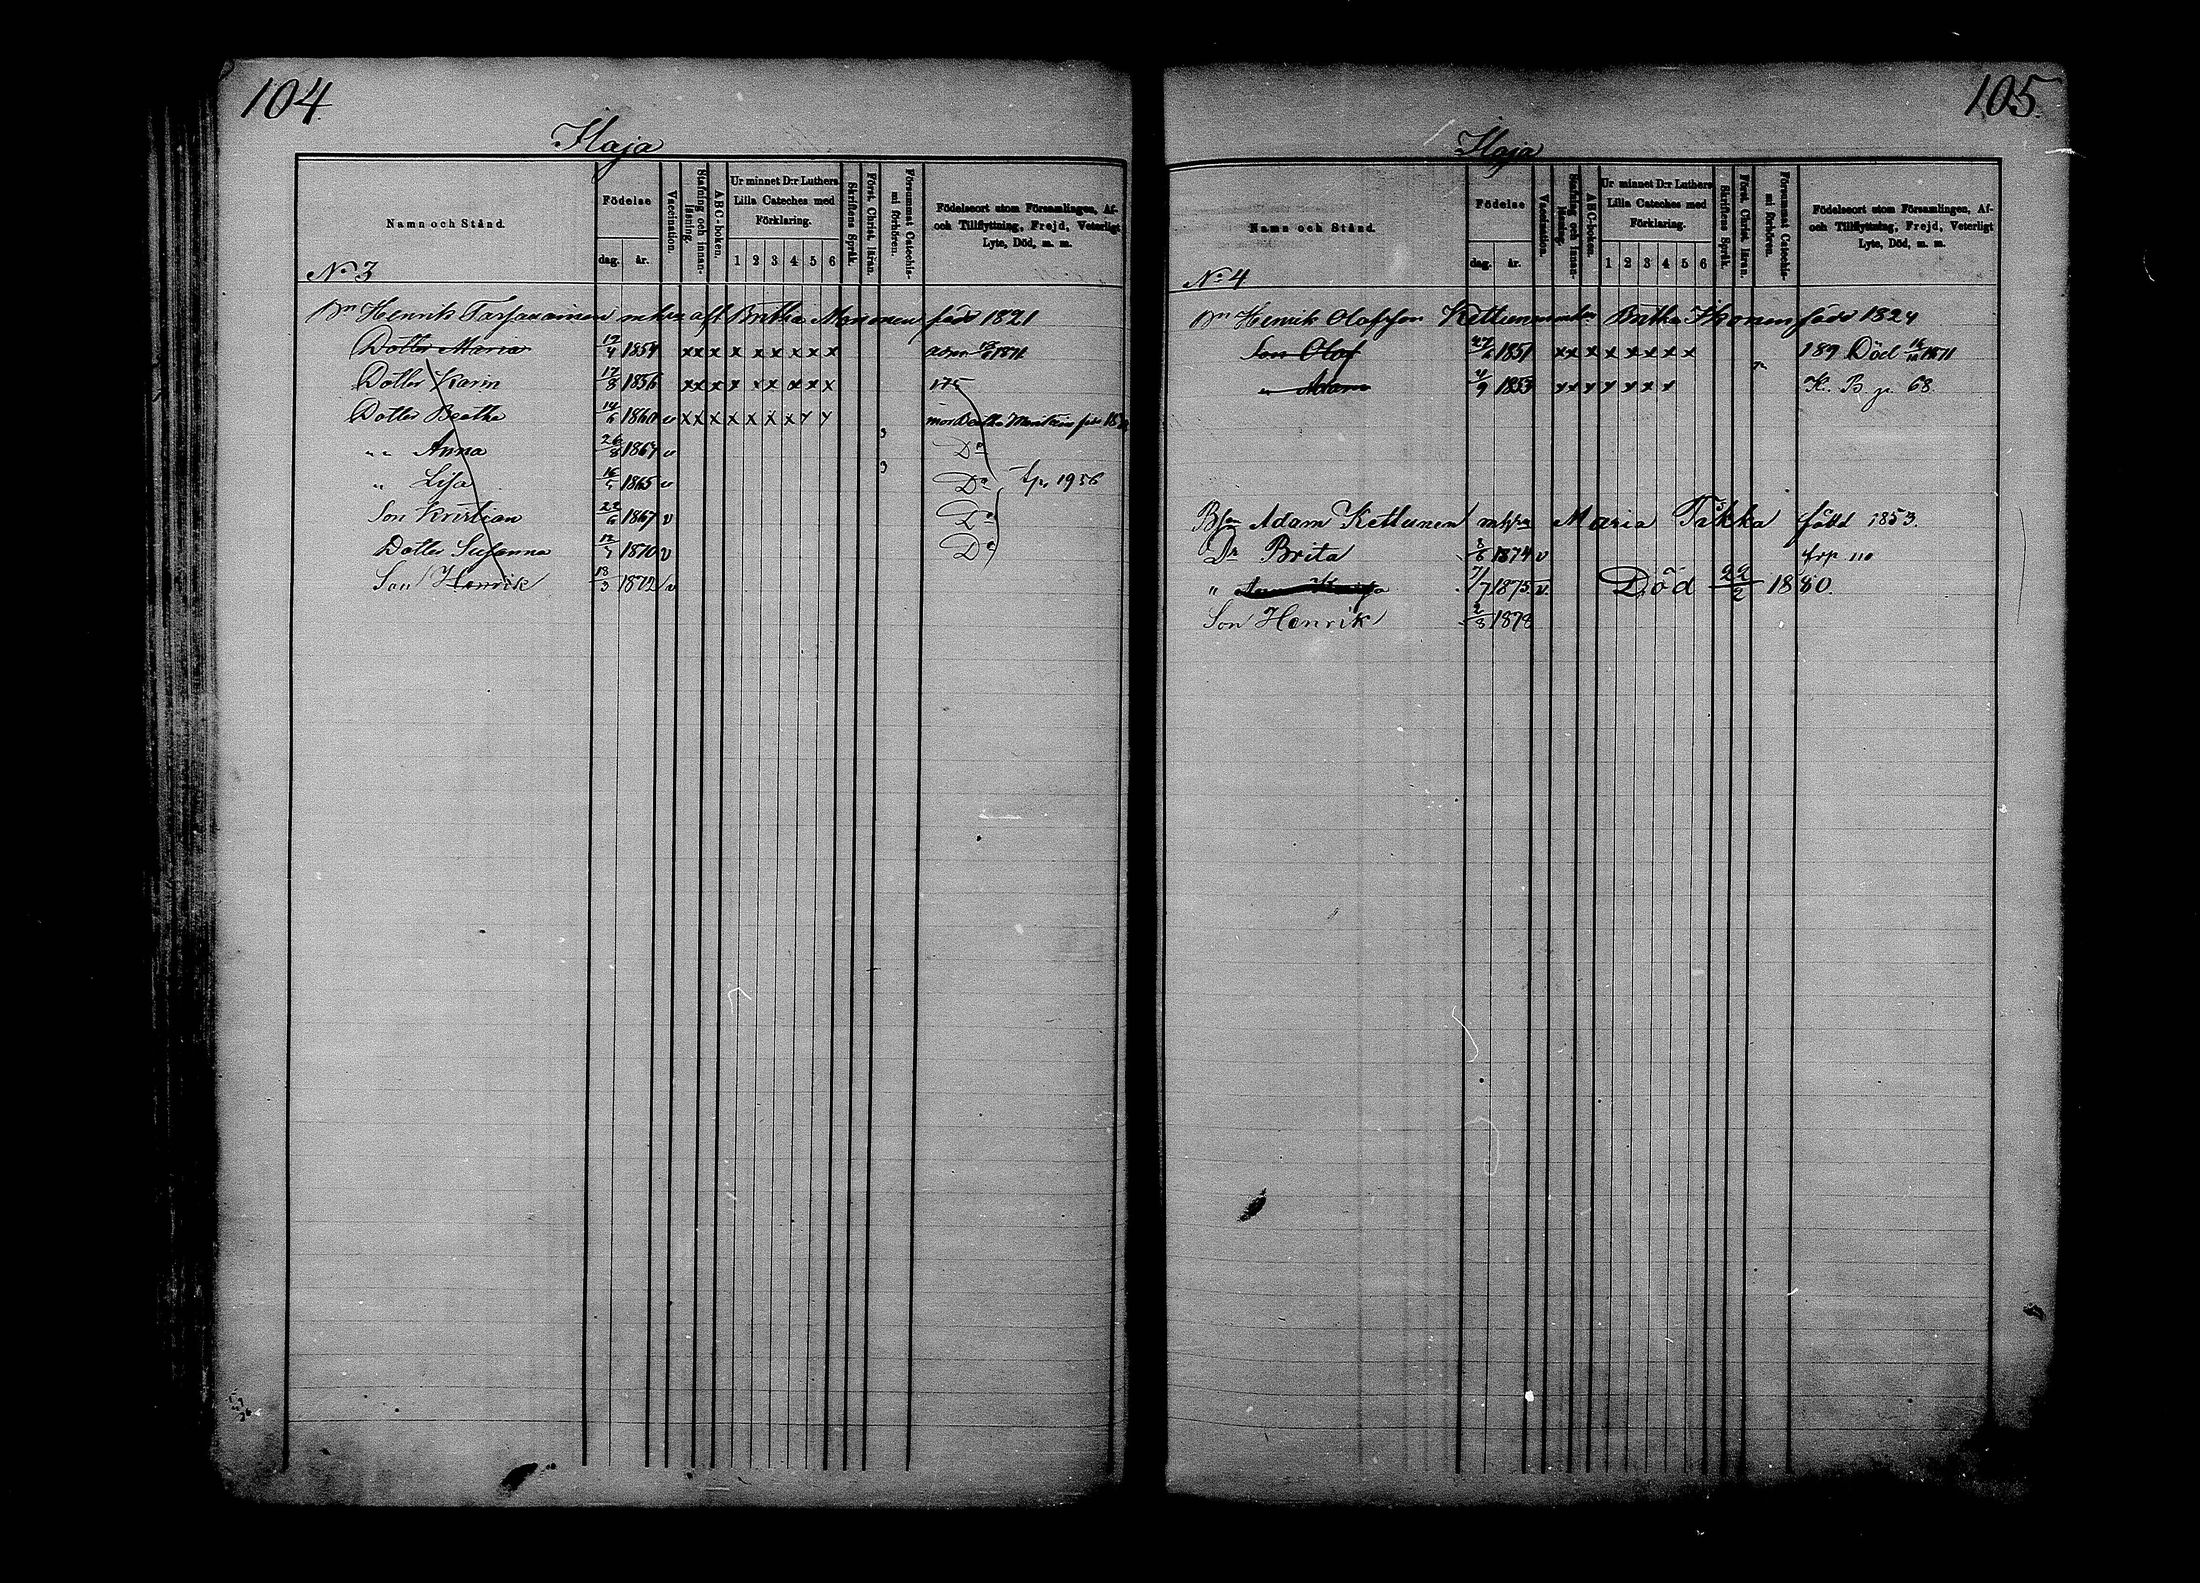 104.
Ilaja
Namn och Stånd.
Födelse
dag. år.
Vaccination.
Stafning och innan-läsning.
ABC-boken.
Ur minnet D:r Luthers Lilla Cateches med Förklaring.
1 2 3 4 5 6
Skriftens Språk.
Först. Christ. läran.
Försummat Catechismi förhören.
Födelseort utom Församlingen, Af- och Tillflyttning, Frejd, Veterligt Lyte, Död, m. m.
No 3
Bn Henrik mhu aft Britha född 1821
Dotter Maria 19/4 1854 x x x x x x x x x 1871
Dotter Karin 17/8 1856 x x x x x x x x x 175
Dotter Beatha 14/6 1860 v x x x x x x x y y mor
" Anna 26/8 1867 v Do
" Lisa 1865 v Do 1936
Son Kristian 22/6 1867 v Do
Dotter Susanna 1870 v Do
Son Henrik 18/3 1872 v
105.
Ilaja
Namn och Stånd.
Födelse
dag. år.
Vaccination.
Stafning och innan-läsning.
ABC-boken.
Ur minnet D:r Luthers Lilla Cateches med Förklaring.
1 2 3 4 5 6
Skriftens Språk.
Först. Christ. läran.
Försummat Catechismi förhören.
Födelseort utom Församlingen, Af- och Tillflyttning, Frejd, Veterligt Lyte, Död, m. m.
No 4
Bn Henrik Olofsson Kettunen Britha Ikonen född 1824
Son Olof 1851 x x x x x x x x 189 Död 1871
" Adam 4/9 1853 x x x x x x x K. B. p. 68.
Bson Adam Kettunen mhu Maria Tikka född 1853.
Dr Brita 8/6 1874 v
" 7/7 1875 v. Död 22/2 1880.
Son Henrik 2/3 1878